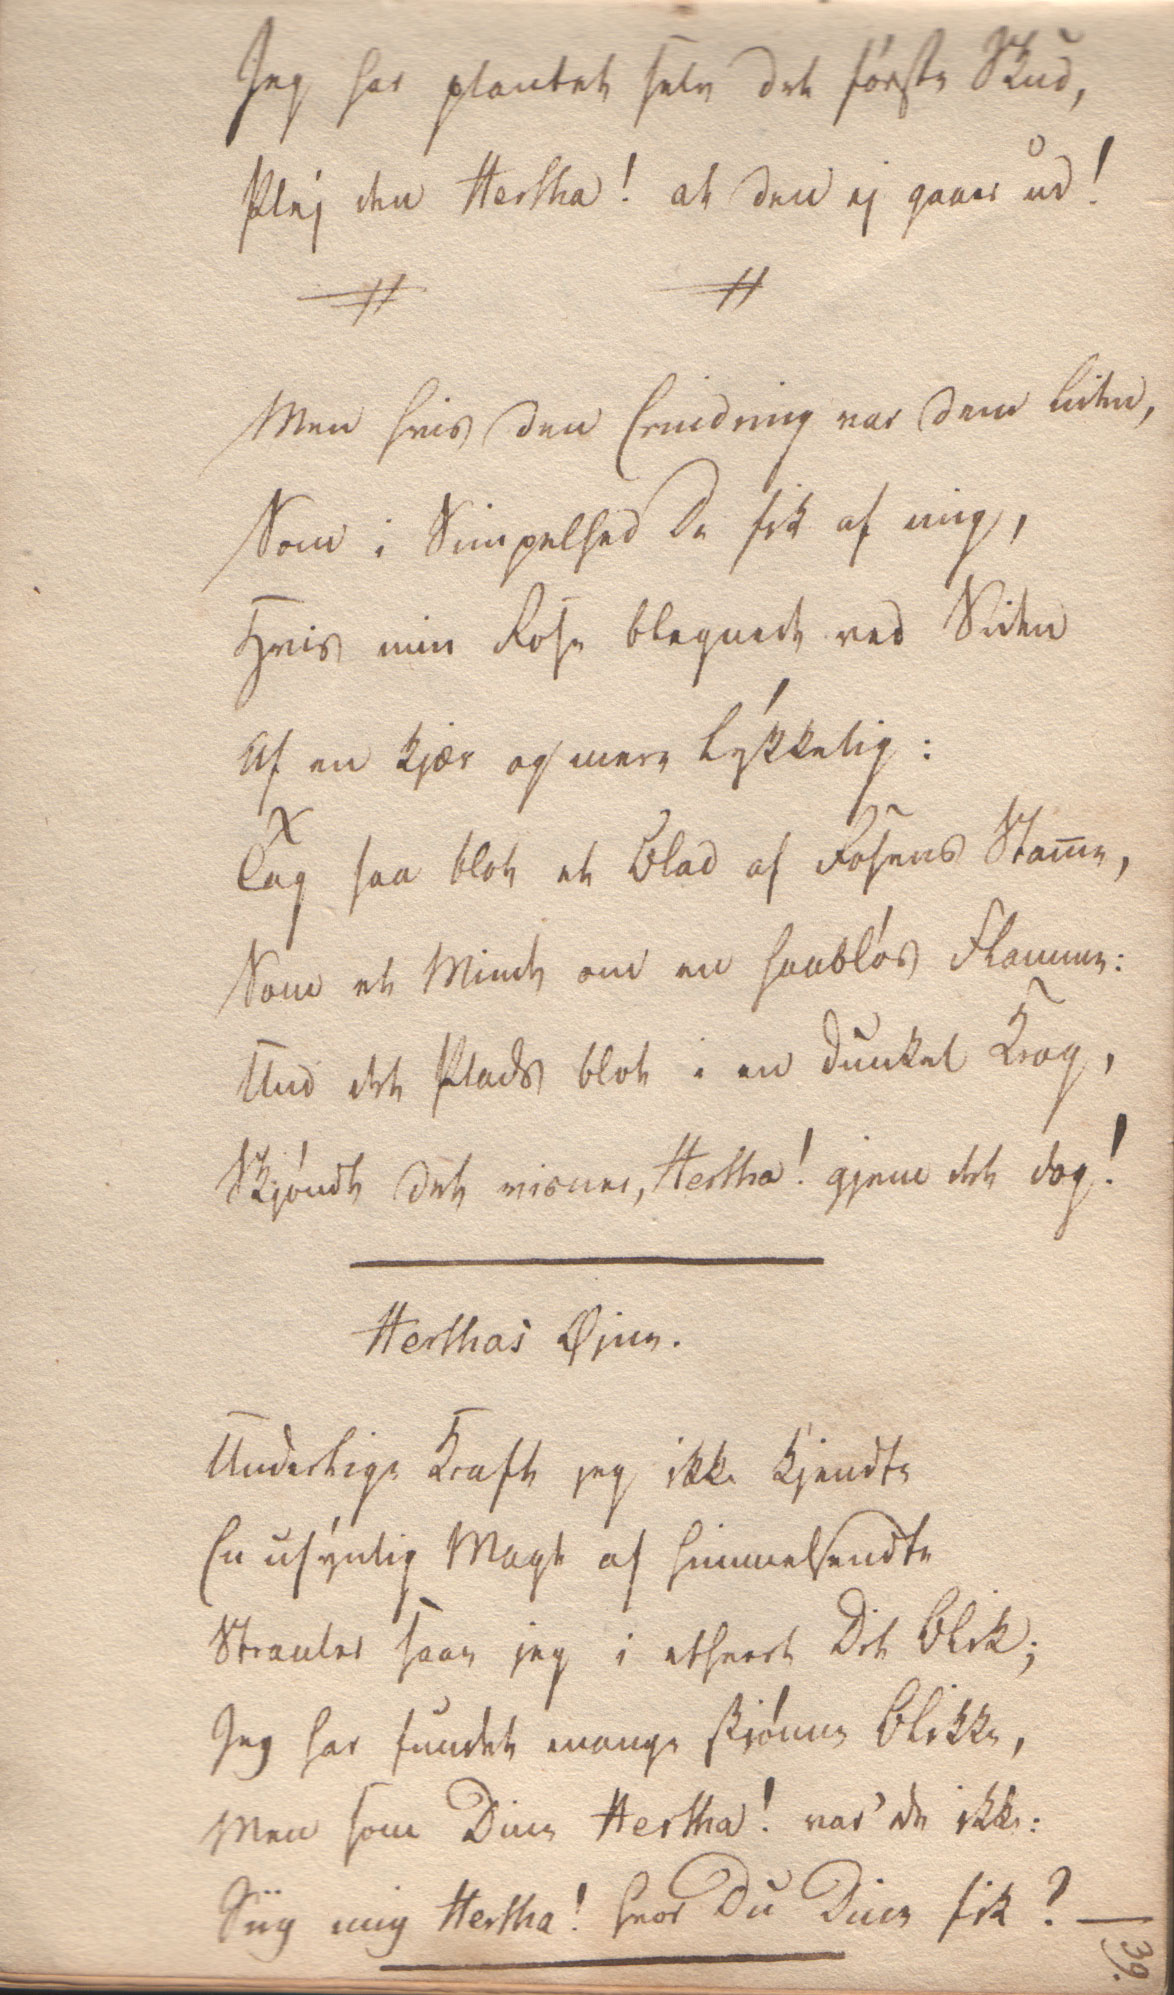 Jeg har plantet selv det første Skud,
Plej den Hertha! at den ej gaaer ud!
Men hvis den Erindring var dem liden,
Som i Simpelhed De fik af mig,
Hvis min Rose blegnede ved Siden
Af en kjær og mere lykkelig:
Tag saa blot et Blad af Rosens Stam̄e,
Som et Minde om en haabløs Flamme:
Und det Plads blot i en dunkel Krog,
Skjøndt det visner, Hertha! gjem det dog!
Herthas Øjne.
Underlige Kraft jeg ikke kjendte
En usynlig Magt af himmelsendte
Straaler saae jeg i ethvert Dit Blik;
Jeg har fundet mange skjønne Blikke,
Men som Dine Hertha! var' de ikke:
Siig mig Hertha! hvor Du Dine fik?
39.